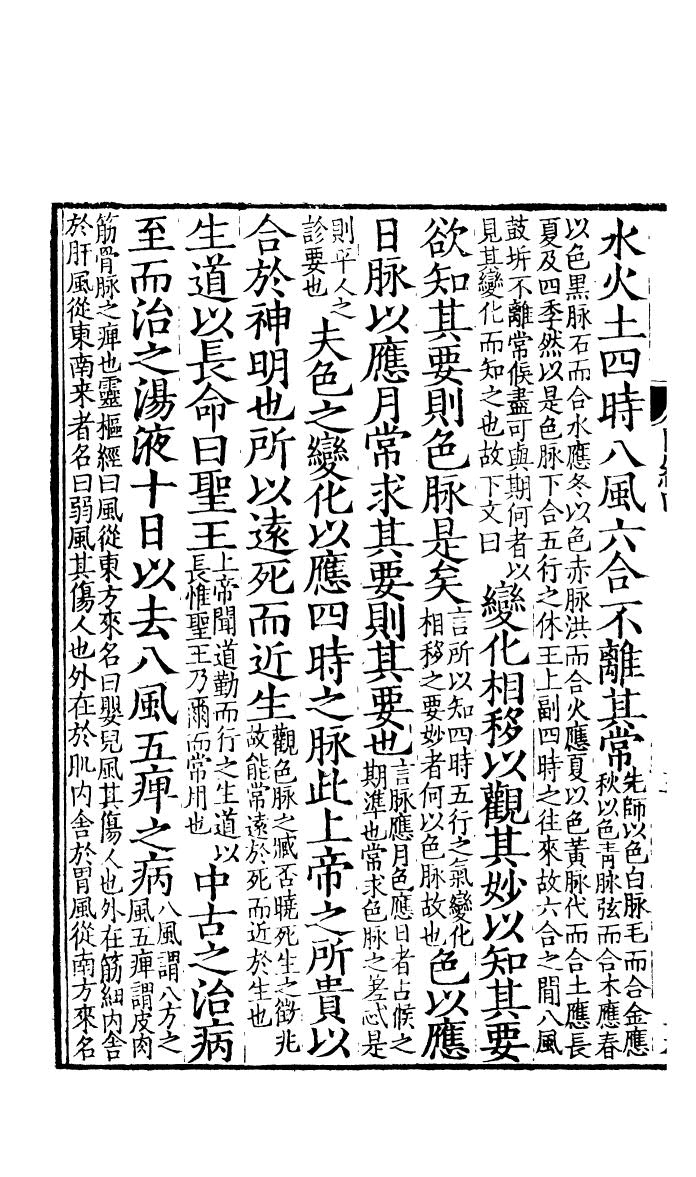 水火土四時八風六合不離其常先師以色白脉毛而合金應秋以色青脉弦而合木應春
以色黑脉石而合水應冬以色赤脉洪而合火應夏以色黃脉代而合土應長夏及四季然以是色脉下合五行之休王上副四時之往來故六合之間八風
鼓坼不離常候盡可與期何者以見其變化而知之也故下文曰變化相移以觀其妙以知其要
欲知其要則色脉是矣言所以知四時五行之氣變化相移之要妙者何以色脉故也色以應
日脉以應月常求其要則其要也言脉應月色應日者占候之期準也常求色脉之差忒是
則平人之診要也夫色之變化以應四時之脉此上帝之所貴以
合於神明也所以遠死而近生觀色脉之臧否曉死生之徵兆故能常遠於死而近於生也
生道以長命曰聖王上帝聞道勤而行之生道以長惟聖王乃爾而常用也中古之治病
至而治之湯液十日以去八風五痺之病八風謂八方之風五痺謂皮肉
筋骨脉之痺也靈樞經曰風從東方來名曰嬰兒風其傷人也外在筋紐內舍於肝風從東南来者名曰弱風其傷人也外在於肌內舍於胃風從南方來名